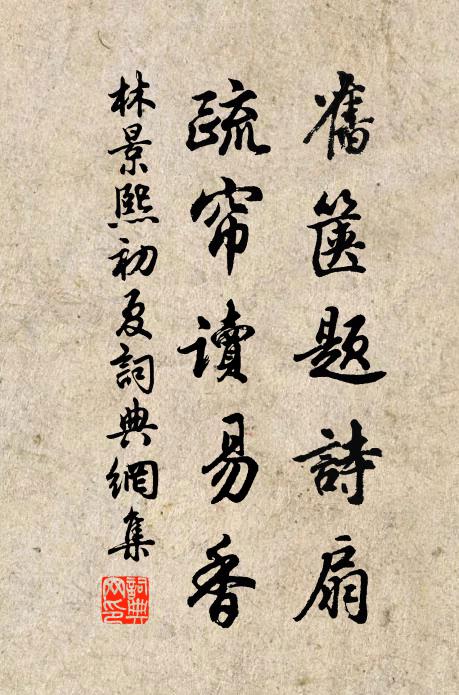 舊篋題詩扇
疏帘讀易香
林景熙初夏詞典網集
詞典網印